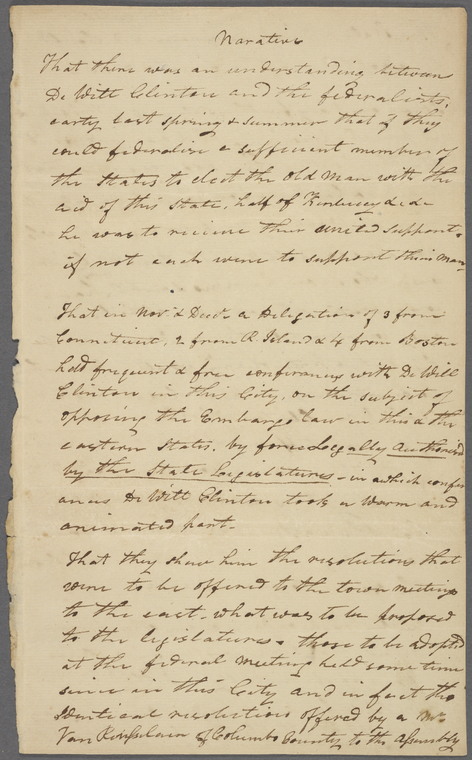 Narative
That there was an understanding between
De Witt Clinton and the federalists,
early last spring & summer that if they
could federalise a sufficient number of
the States to elect the Old Man with the
aid of this State, half of Kentucky &c &c
he was to receive their united support.
if not each were to support their man
That in Nov. & Decr. a Delegation of 3 from
Connecticut, 2 from R. Island & 4 from Boston
held frequent & free conferences with De Witt
Clinton in this City, on the subject of
opposing the Embargo law in this & the
eastern States. by force Legally Authorised
by the State Legislatures - in which confer
ances De Witt Clinton took a warm and
animated part-
That they shew him the resolutions that
were to be offered to the town meetings
to the east. what was to be proposed
to the legislatures. those to be adopted
at the federal meeting held some time
since in this City and in fact the
identical resolutions offered by a Mr
Van Rensselaer of Columba County to the Assembly